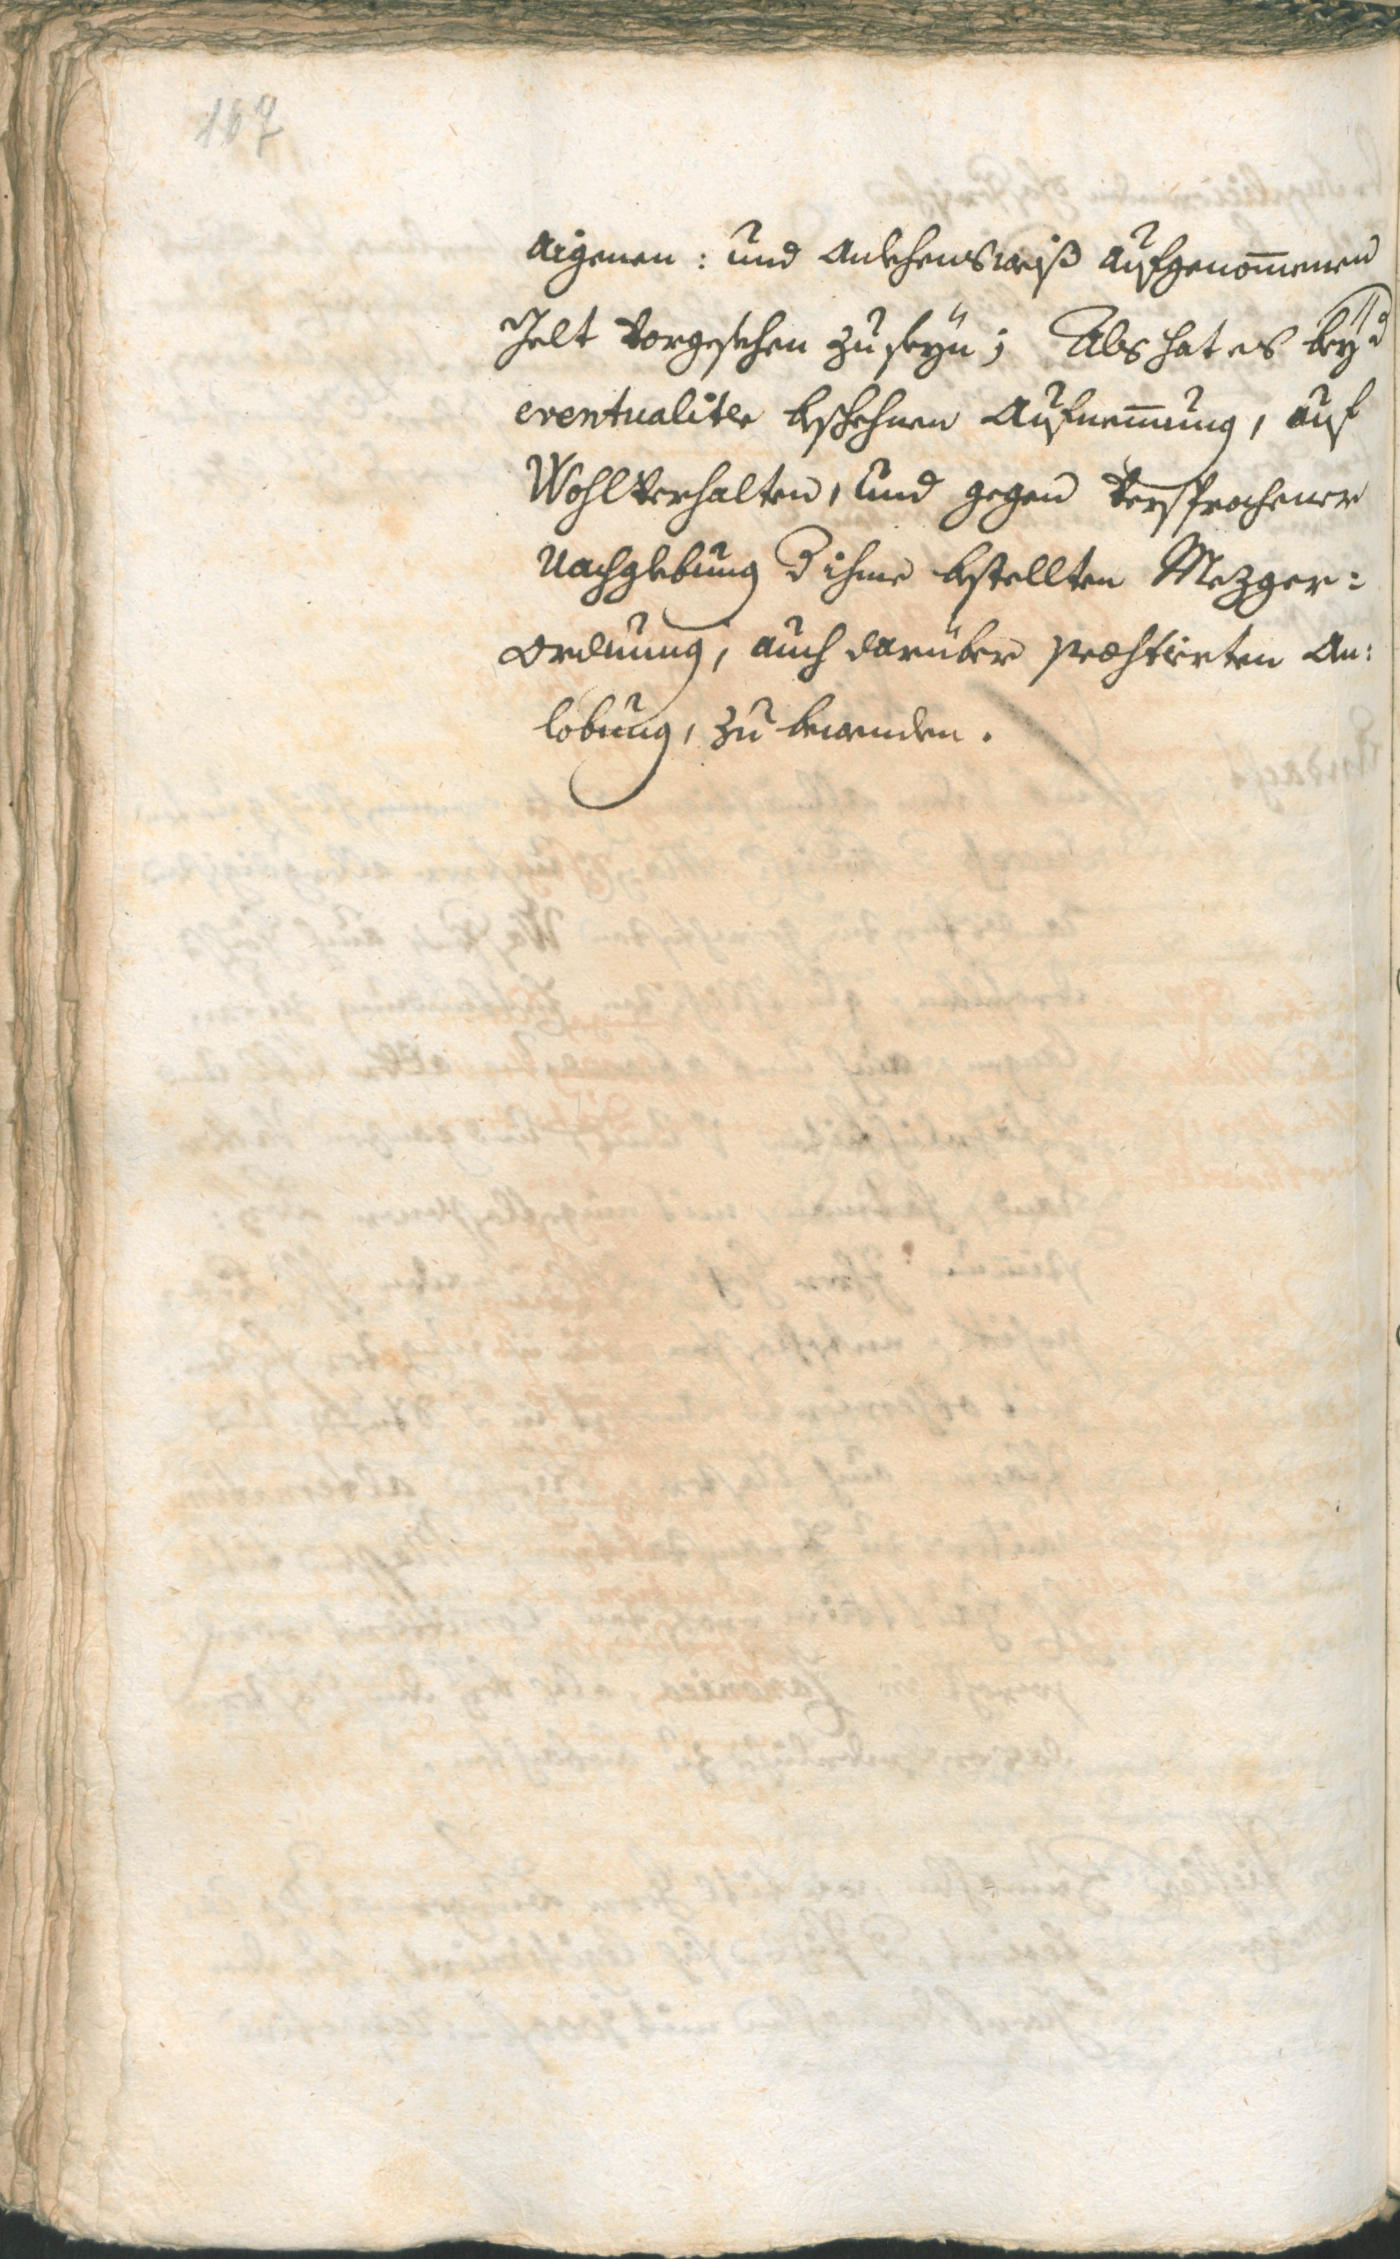 167
aigenen: und Anlehensweiß aufgenom̄enen
Gelt vorgesehen zu seyn; Als hat es bey d
eventualiter beschehnen Aufnem̄ung, auf
Wohlverhalten, und gegen versprochener
Nachgebung d ihme bestellten Mezger=
ordnung, auch darüber præstirten An:
lobung, zu bewenden.